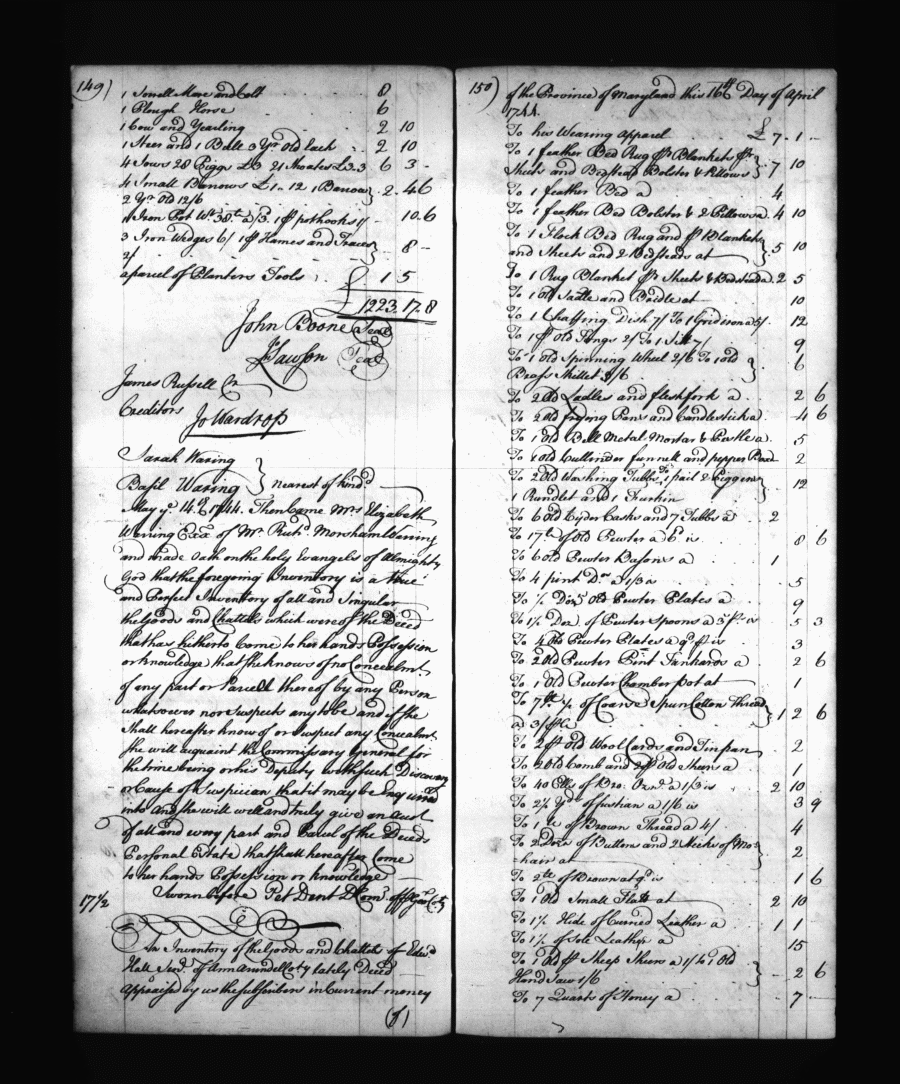 149)
1 Sorrell Mare and Colt 8
1 Plough Horse 6
1 Cow and Yearling 2 10
1 Steer and 1 Bull 3 Yr Old each 2 10
4 Sows 28 Piggs £3 21 Shoates £3.3 6 3 -
4 Small Barrows £1.. 12 1 Barrow 2 Yr Old 12/6 2 .. 4 6
1 Iron Pot Wt. 38 lt. a /3. 1 pr pothooks 1/ 10.6
3 Iron Wedges 6/ 1 pr Hames and Traces 2/ - 8 -
a parcel of Planters Tools 1 5
£ 1223.17.8
John Boone Seal
Lawson Seal
James Russell
Creditors
Jo Wardrop
Sarah Waring
Basil Waring } nearest of kind
May ye. 14th. 1744. Then Came Mrs Elizabeth
Waring Exa. of Mr. Richd. Marsham Waring
and made Oath on the holy Evangels of Almighty
God that the foregoing Inventory is a true
and Perfect Inventory of all and Singular
the Goods and Chattels which were of the Deced
that has hitherto Come to her hands Possession
or knowledge that she knows of no Concealmt.
of any part or Parcell thereof by any Person
whatsoever nor Suspects any to be and if she
shall hereafter know of or Suspect any Concealmt
she will acquaint the Commissary General for
the time being or his Deputy with such Discovery
or Cause of Suspicion that it may be Inquired
into and she will well and truly give an Acct
of all and every part and Parcel of the Deceds
Personal Estate that shall hereafter Come
to her hands Possession or knowledge
Sworn before Pet Dent D Com.
17 1/2
An Inventory of the Goods and Chattels of Edwd
Hall Junr. of Ann Arundell Coty lately Deced
Appraised by us the subscribers in Current money
(of)
150)
of the Province of Maryland this 16th Day of April
1744.
To his Wearing Apparel £ 7 .. 1 ..
To 1 feather Bed Rug pr Blankets pr
Sheets and Bedstead Bolster & Pillows } 7 10
To 1 feather Bed a 4
To 1 feather Bed Bolster & 2 Pillows a 4 10
To 1 Flock Bed Rug and pr Blankets
and Sheets and 2 Bedsteads at } 5 10
To 1 Rug Blanket pr Sheets & Bedstead a 2 5
To 1 old Sadle and Bridle at 10
To 1 Chaffing Dish 7/ To 1 Gridiron a 5/ 12
To 1 pr old Tongs 2/ To 1 7/ 9
To 1 old Spinning Wheel 2/6 To 1 old
Brass Skillet 3/6 } 6
To 2 Old Ladles and fleshfork a 2 6
To 2 Old frying Pans and Candlestick a 4 6
To 1 Old Bell Metal Mortar & Pestle a 5
To 1 Old Cullinder funnell and pepper Box 2
To 2 Old Washing Tubbs 1 pail 2 Piggens
1 Rundlet and 1 Firkin } 12
To 6 Old Cyder Casks and 7 Tubbs a 2
To 17 lt. of Old Pewter a 6d is 8 6
To 6 Old Pewter Basons a 1
To 4 pint Do a 1/3 is 5
To 1/2 Doz. Old Pewter Plates a 9
To 1 3/4 Doz of Pewter Spoons a is 5 3
To 4 Old Pewter Plates a 9d is 3
To 2 Old Pewter Pint Tankards a 2 6
To 1 Old Pewter Chamber pot at 1
To 7 lt 1/2 of Coarse Spun Cotton Thread
a 3/ } 1 2 6
To 2 pr old Wool Cards and Tinpan 2
To 2 old Comb and 2 pr Old Sheers a 1
To 40 Ells of Bro: Ozn.. a 1/3 is 2 10
To 2 1/2 Yds of fustian a 1/6 is 3 9
To 1 lt of Brown Thread a 4/ 4
To 2 Doz of Buttons and 2 Sticks of Mo-
-hair at } 2
To 2 lt. of Brown at 9d is 1 6
To 1 Old Small Flatt at 2 10
To 1 1/2 Hide of Curried Leather a 1 1
To 1 1/2 of Sole Leather a 15
To 1 Old pr Sheep Sheers a 1/ to 1 Old
Hand Saw 1/6 } - 2 6
To 7 Quarts of Honey a - 7 -